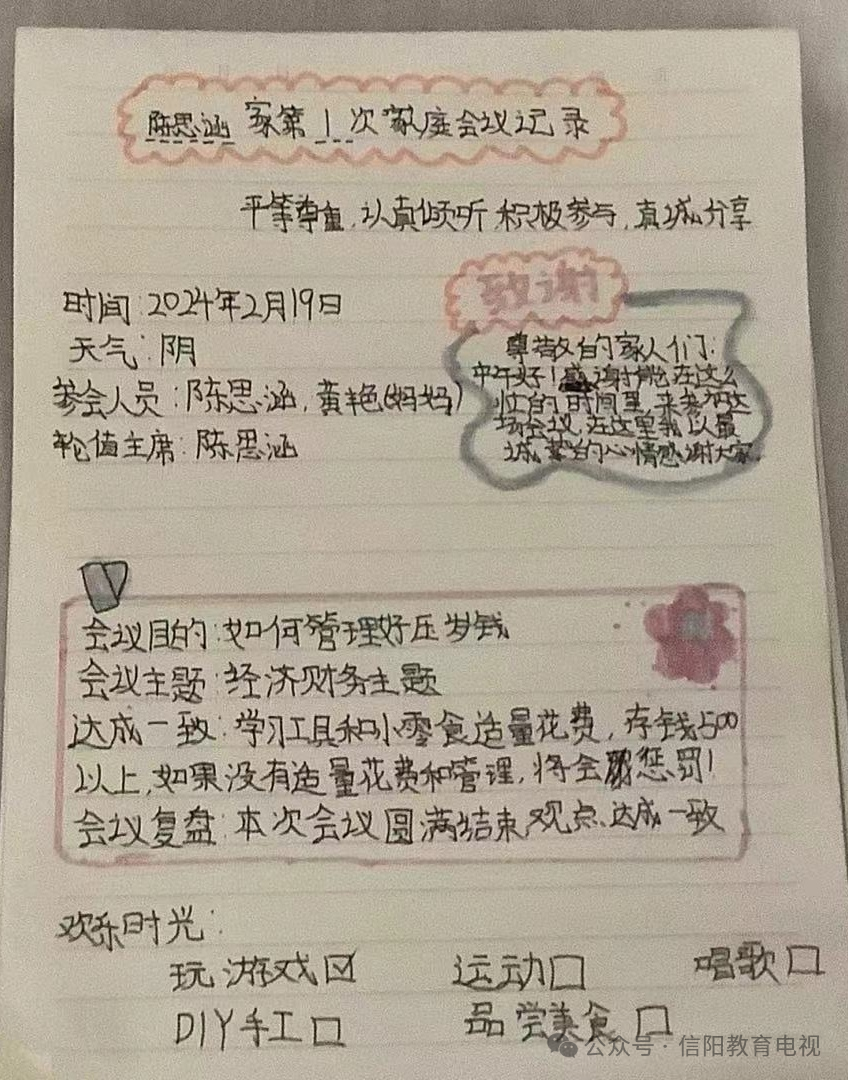 陈思涵家第1次家庭会议记录
平等尊重,认真倾听,积极参与,真诚分享
时间:2024年2月19日
天气:阴
参会人员:陈思涵,黄艳(妈妈)
轮值主席:陈思涵
致谢
尊敬的家人们:
中午好!感谢能在这么
忙的时间里,来参加这
场会议,在这里我以最
诚挚的心情感谢大家.
会议目的:如何管理好压岁钱
会议主题:经济财务主题
达成一致:学习工具和小零食适量花费,存钱500
以上,如果没有适量花费和管理,将会惩罚!
会议复盘:本次会议圆满结束观点达成一致
欢乐时光:
玩游戏☑ 运动□ 唱歌□
DIY手工□ 品尝美食□
公众号·信阳教育电视